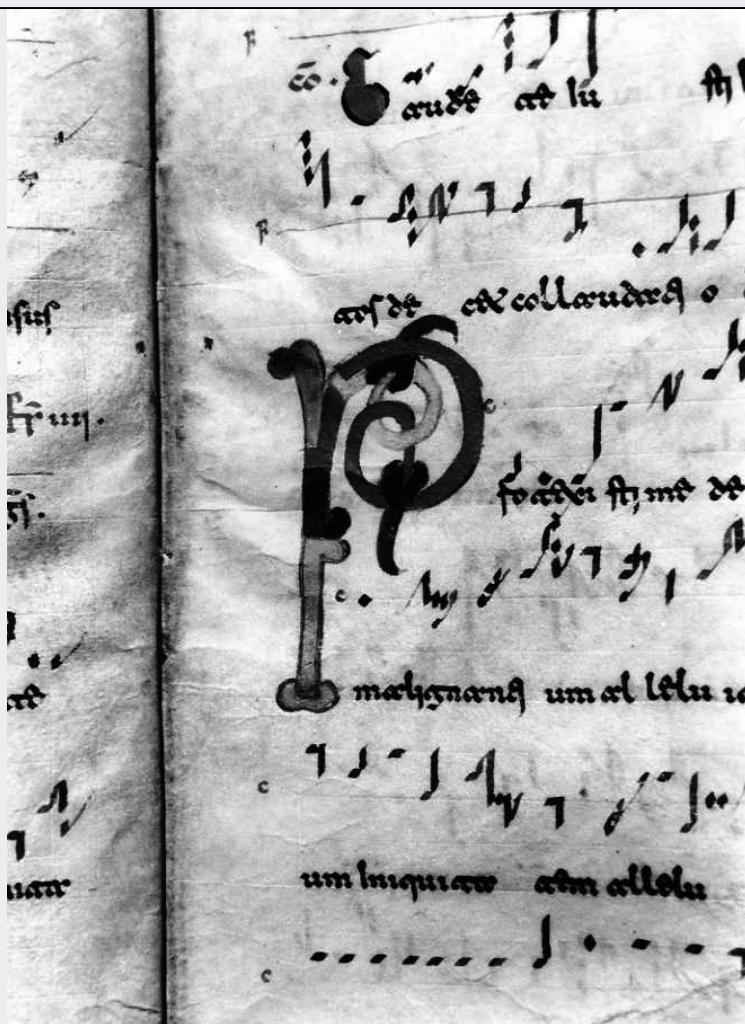 cō. Gaude te iu sti
ctos de cet collaudati o
Protexi sti me de
malignanti um al lelu ia
um iniquita tem allelu